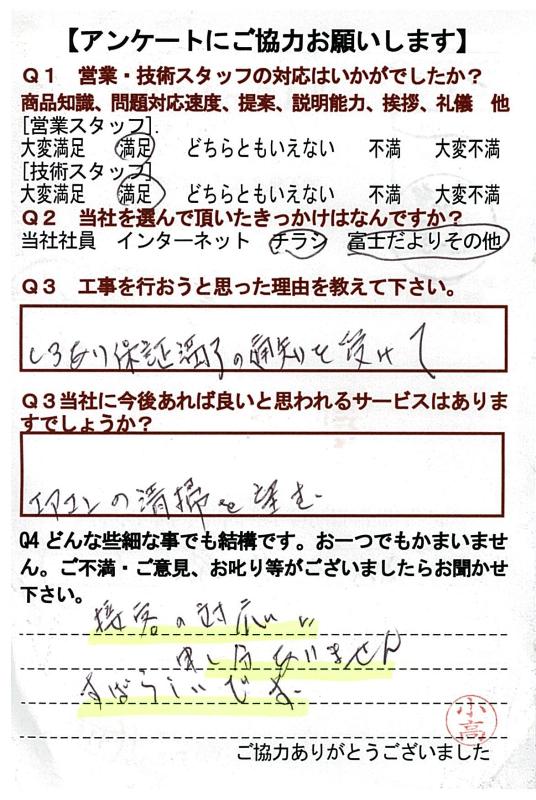 【アンケートにご協力お願いします】
Q1 営業・技術スタッフの対応はいかがでしたか？
商品知識、問題対応速度、提案、説明能力、挨拶、礼儀 他
[営業スタッフ].
大変満足 満足 どちらともいえない 不満 大変不満
[技術スタッフ]
大変満足 満足 どちらともいえない 不満 大変不満
Q2 当社を選んで頂いたきっかけはなんですか？
当社社員 インターネット チラシ 富士だよりその他
Q3 工事を行おうと思った理由を教えて下さい。
しろあり保証満了の通知を受けて
Q3当社に今後あれば良いと思われるサービスはありま
すでしょうか？
エアコンの清掃を望む
Q4 どんな些細な事でも結構です。お一つでもかまいませ
ん。ご不満・ご意見、お叱り等がございましたらお聞かせ
下さい。
接客の対応
申し分ありません
すばらしいです
小高
ご協力ありがとうございました